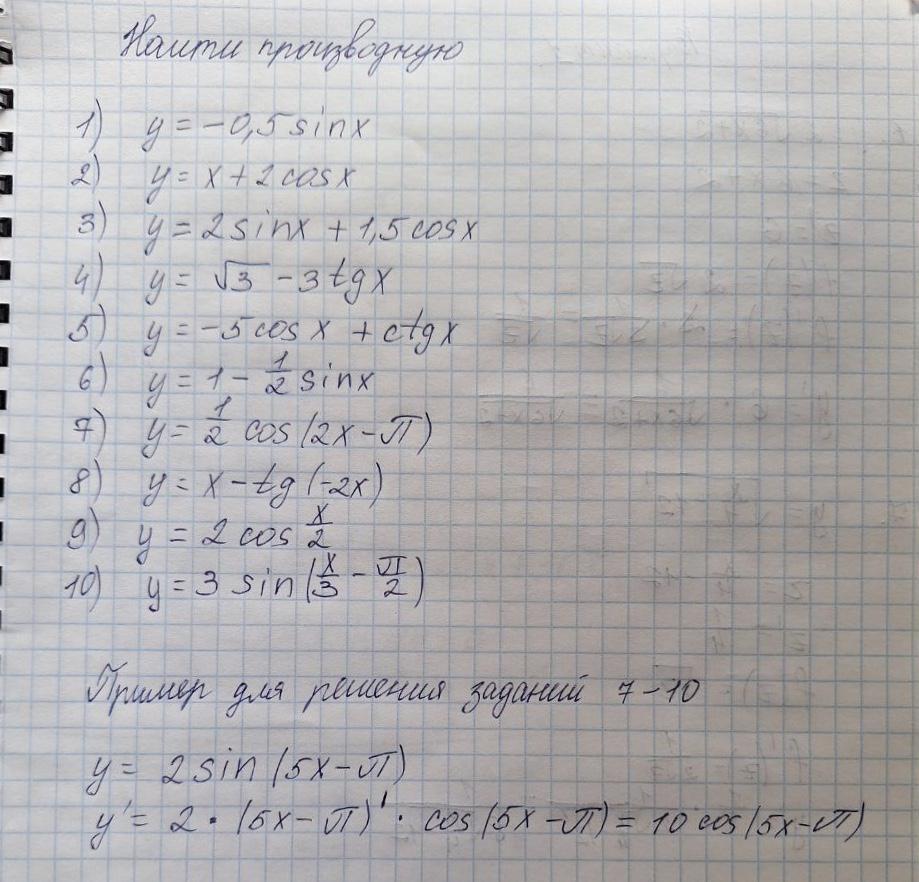 Найти производную
1) y = -0,5 sinx
2) y = x + 2 cosx
3) y = 2 sinx + 1,5 cosx
4) y = √3 - 3 tgx
5) y = -5 cosx + ctgx
6) y = 1 - 1/2 sinx
7) y = 1/2 cos(2x - π)
8) y = x - tg(-2x)
9) y = 2 cos x/2
10) y = 3 sin(x/3 - π/2)
Пример для решения заданий 7-10
y = 2 sin(5x - π)
y' = 2 · (5x - π)' · cos(5x - π) = 10 cos(5x - π)